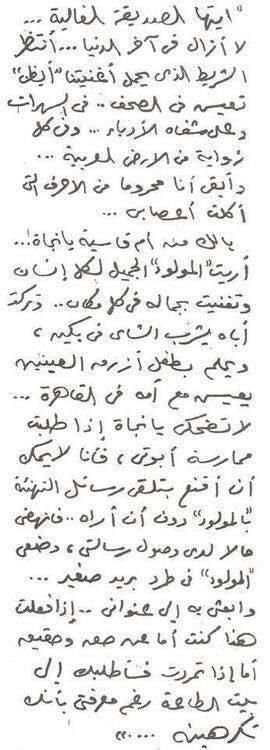 "ايتها الصديقة الغالية ...
لا أزال فى آخر الدنيا ... أنتظر
الشريط الذى يحمل أغنيتنا "أيظن"
تعيش فى الصحف .. فى السهرات
وعلى شفاه الأدباء ... وفى كل
زاوية من الارض العربية ...
وأبقى أنا محروما من الاحرف التى
أكلت أعصابى ...
يالك من أم قاسية يا نجاة! ...
أريت "المولود" الجميل لكل إنسان
وتغنيت بجماله فى كل مكان .. وتركت
أباه يشرب الشاى فى بكين ،
ويحلم بطفل أزرق العينين
يعيش مع أمه فى القاهرة ...
لا تضحكى يا نجاة إذا طلبت
ممارسة أبوتى ، فأنا لا يمكن
أن أقنع بتلقى رسائل التهنئة
"بالمولود" دون أن أراه .. فانهضى
حالا لدى وصول رسالتى ، وضعى
"المولود" فى طرد بريد صغير ...
وابعثى به إلى عنوانى .. إذا فعلت
هذا كنت أما عن حق وحقيقه
أما إذا تمردت فسأطلبك إلى
بيت الطاعة رغم معرفتى بأنك
تكرهينه ....."